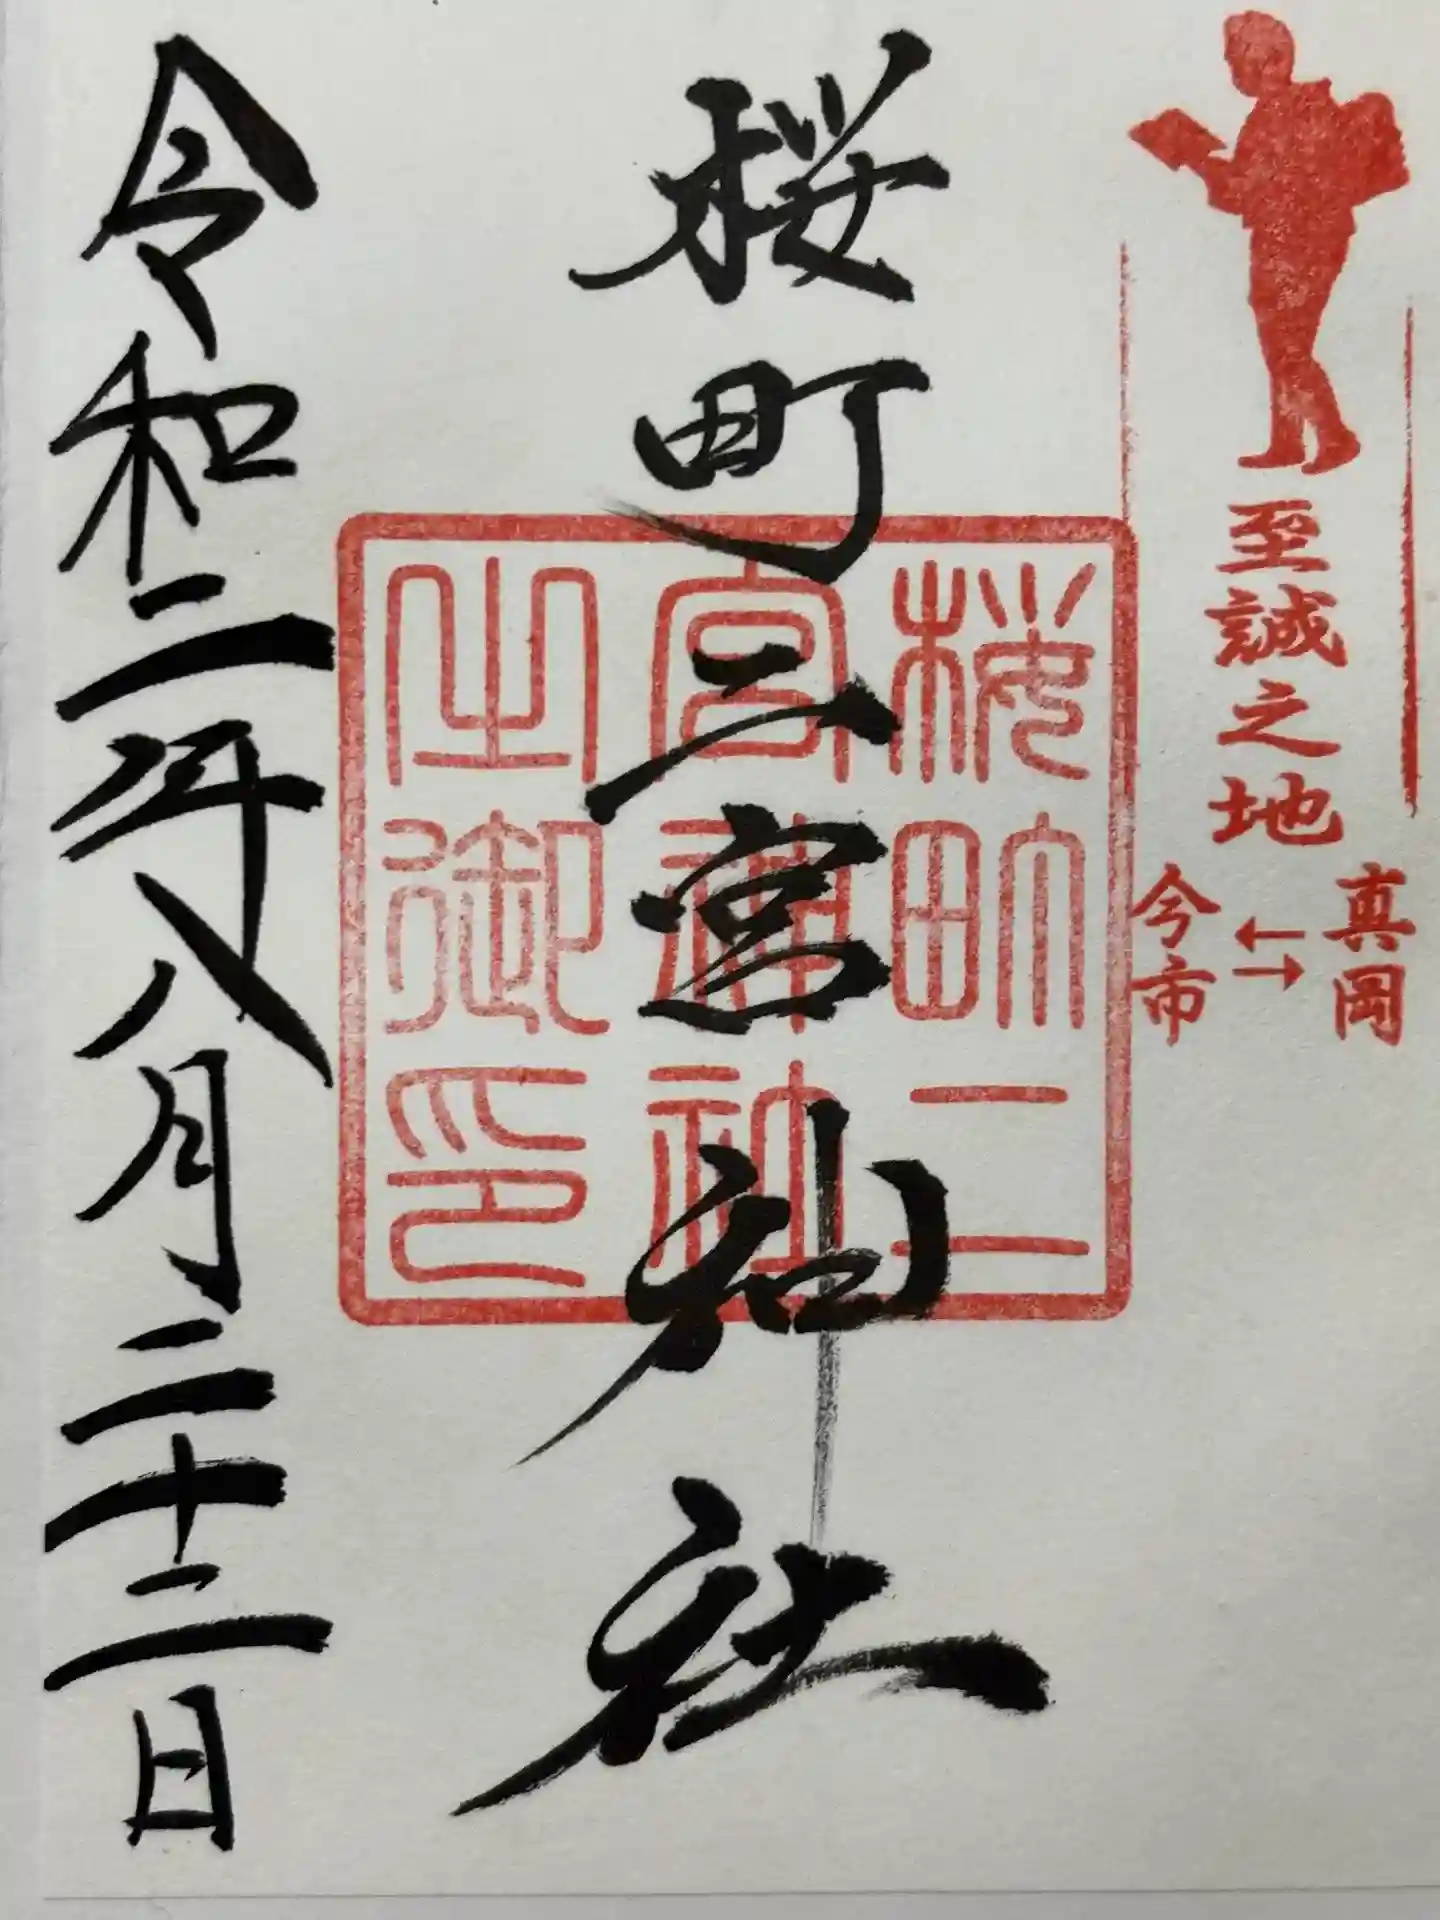 至誠之地
真岡
←
→
今市
桜町二宮神社
桜町二
宮神社
之御印
令和二年八月二十二日